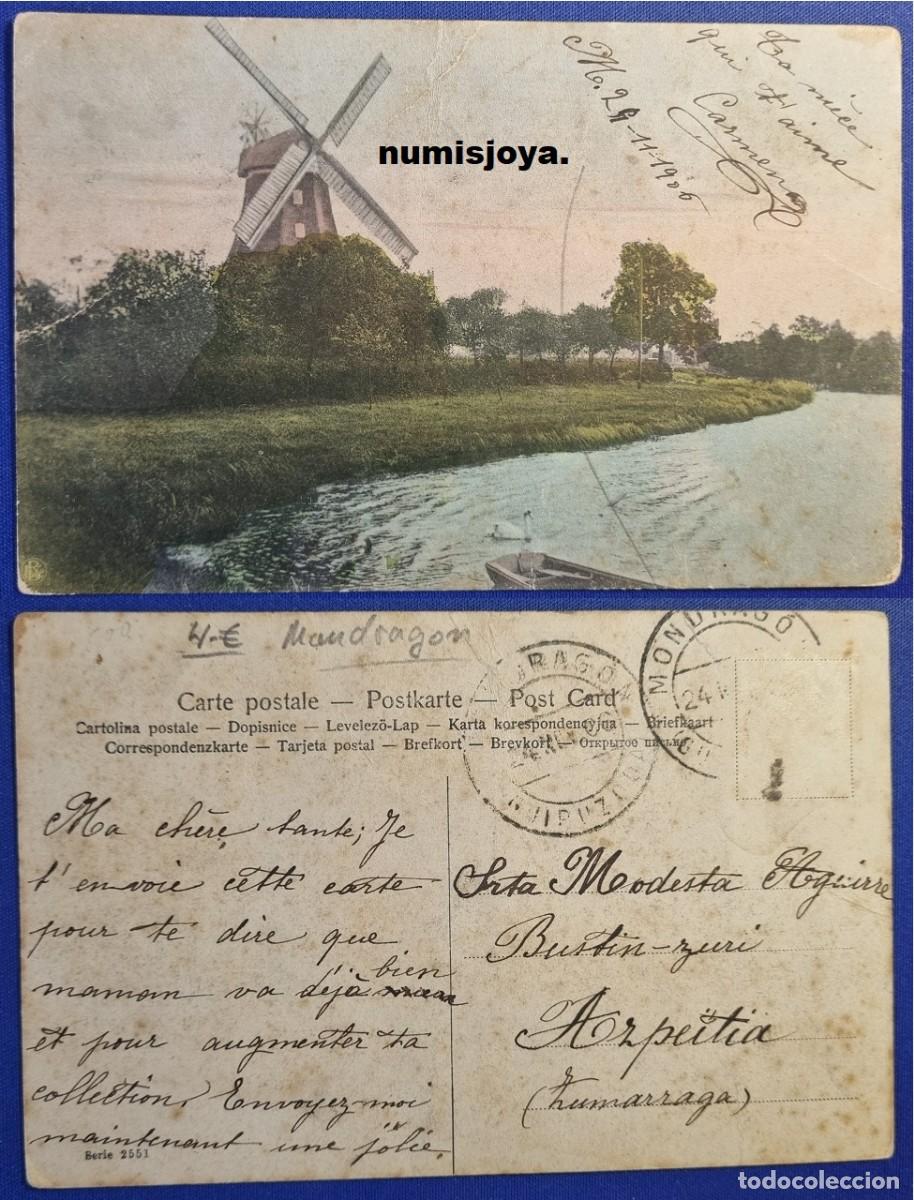 numisjoya.
Ta nièce
qui t'aime
Carmen
M. 24-11-1906
4-€ Mandragon
MONDRAGÓ
24
DRAGÓN
GUIPUZCOA
Carte postale — Postkarte — Post Card
Cartolina postale — Dopisnice — Levelezö-Lap — Karta korespondencyjna — Briefkaart
Correspondenzkarte — Tarjeta postal — Brefkort — Brevkort — Открытое письмо
Ma chère tante; Je
t'envoie cette carte
pour te dire que
maman va déjà bien
et pour augmenter ta
collection. Envoyez-moi
maintenant une jolie.
Serie 2551
Srta Modesta Aguirre
Bustin-zuri
Azpeitia
(Zumarraga)
todocoleccion